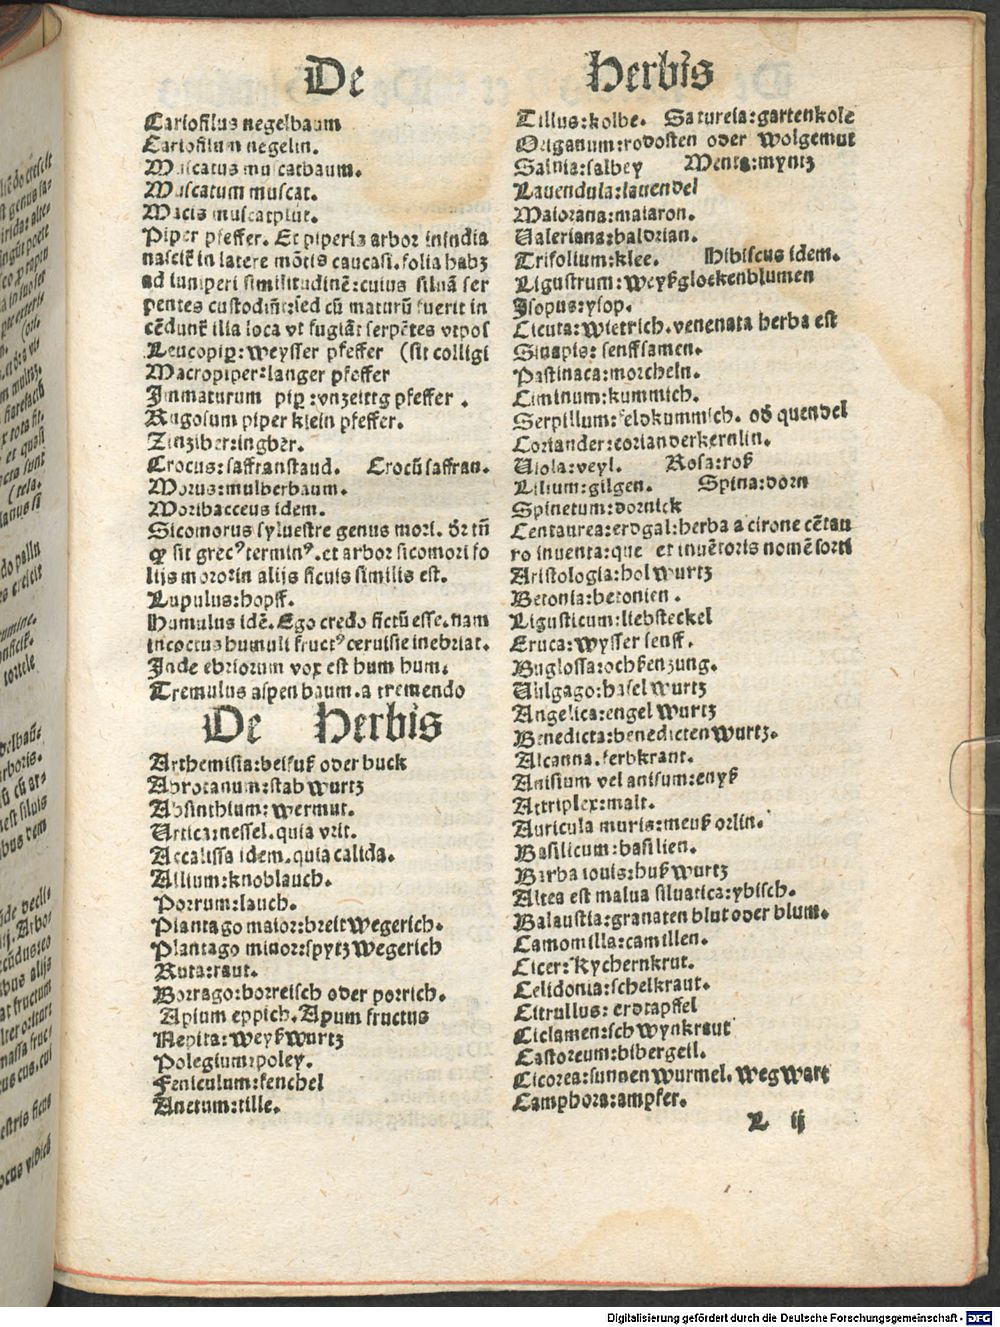 De Herbis
Cariofilus negelbaum
Cariofilum negelin.
Muscatus muscatbaum.
Muscatum muscat.
Macis muscatplut.
Piper pfeffer. Et piperis arbor inindia
nascit̃ in latere mõtis caucasi. folia habꝫ
ad iuniperi similitudinẽ: cuius siluã ser
pentes custodiũt: sed cũ maturũ fuerit in
cẽdunt̃ illa loca vt fugiãt serpẽtes vtpos
Leucopip̲: weysser pfeffer (sit colligi
Macropiper: langer pfeffer
Immaturum pip̲: vnzeittg pfeffer .
Rugosum piper klein pfeffer.
Zinziber: ingber.
Crocus: saffranstaud. Crocũ saffran.
Morus: mulberbaum.
Moribacceus idem.
Sicomorus syluestre genus mori. dr̃ tñ
ꝙ sit grecꝰ terminꝰ. et arbor sicomori fo
lijs mororin alijs ficuis similis est.
Lupulus: hopff.
Humulus idẽ. Ego credo fictũ esse. nam
incoctus humuli fructꝰ ceruisie inebriat.
Inde ebriorum vox est hum hum.
Tremulus aspen baum. a tremendo
De Herbis
Arthemisia: beifuß oder buck
Abrotanum: stab wurtz
Absinthium: wermut.
Urtica: nessel. quia vrit.
Accalissa idem. quia calida.
Allium: knoblauch.
Porrum: lauch.
Plantago maior: breit wegerich.
Plantago minor: spytz wegerich
Ruta: raut.
Borrago: borreisch oder porrich.
Apium eppich. Apum fructus
Nepita: weyß wurtz
Polegium: poley.
Feniculum: fenchel
Anetum: tille.
Tillus: kolbe. Satureia: gartenkole
Origanum: rodosten oder wolgemut
Saluia: salbey Menta: myntz
Lauendula: lauendel
Maiorana: maiaron.
Ualeriana: baldrian.
Trifolium: klee. Hibiscus idem.
Ligustrum: weyßglockenblumen
Isopus: ysop.
Cicuta: wietrich. venenata herba est
Sinapis: senffsamen.
Pastinaca: morcheln.
Ciminum: kummich.
Serpillum: feldkummich. od̃ quendel
Coriander: corianderkernlin.
Uiola: veyl. Rosa: roß
Lilium: gilgen. Spina: dorn
Spinetum: dornick
Centaurea: erdgal: herba a cirone cẽtau
ro inuenta: que et inuẽtoris nomẽ sorti
Aristologia: hol wurtz
Betonia: betonien .
Ligusticum: liebsteckel
Eruca: wysser senff.
Buglossa: ochßenzung.
Uulgago: hasel wurtz
Angelica: engel wurtz
Benedicta: benedicten wurtz.
Alcanna. ferbkrant.
Anisium vel anisum: enyß
Attriplex: malt.
Auricula muris: meuß orlin.
Basilicum: basilien.
Barba iouis: huß wurtz
Altea est malua siluatica: ybisch.
Balaustia: granaten blut oder blum.
Camomilla: camillen.
Cicer: Kychernkrut.
Celidonia: schelkraut.
Citrullus: erdtapffel
Ciclamen: schwynkraut
Castoreum: bibergeil.
Cicorea: sunnen wurmel. weg wart
Camphora: ampfer.
L ij
Digitalisierung gefördert durch die Deutsche Forschungsgemeinschaft - DFG